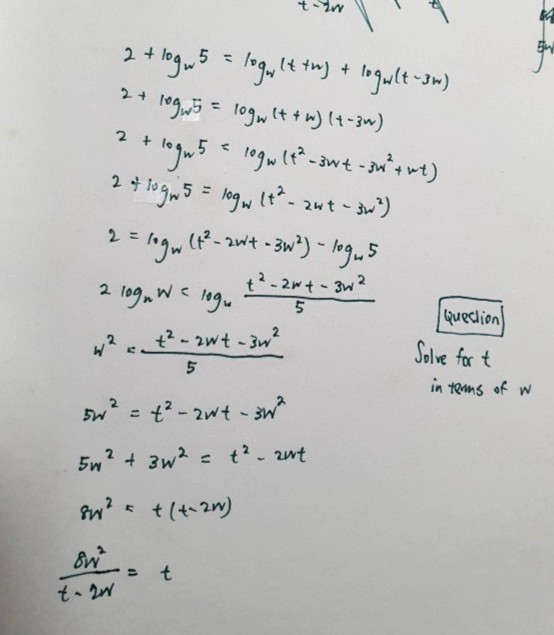 t-2w
5w
2 + log_w 5 = log_w (t+w) + log_w (t-3w)
2 + log_w 5 = log_w (t+w)(t-3w)
2 + log_w 5 = log_w (t² - 3wt - 3w² + wt)
2 + log_w 5 = log_w (t² - 2wt - 3w²)
2 = log_w (t² - 2wt - 3w²) - log_w 5
2 log_w w = log_w (t² - 2wt - 3w²)/5
w² = (t² - 2wt - 3w²)/5
5w² = t² - 2wt - 3w²
5w² + 3w² = t² - 2wt
8w² = t(t-2w)
8w²/(t-2w) = t
Question
Solve for t
in terms of w